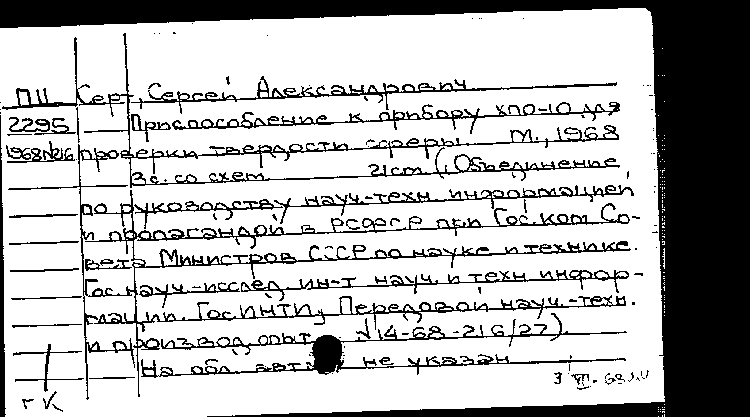 ПII Серт, Сергей Александрович
2295 Приспособление к прибору ХПО-10 для
1968№216 проверки твердости сферы. М., 1968
3 с. со схем. 21 см (Объединение
по руководству науч.-техн. информацией
и пропагандой в РСФСР при Гос. ком. Со-
вета Министров СССР по науке и технике.
Гос. науч.-исслед. ин-т науч. и техн. инфор-
мации. ГосИНТИ, Передовой науч.-техн.
и производ. опыт №14-68-216/27).
На обл. авт. не указан
3 VII.68
гк